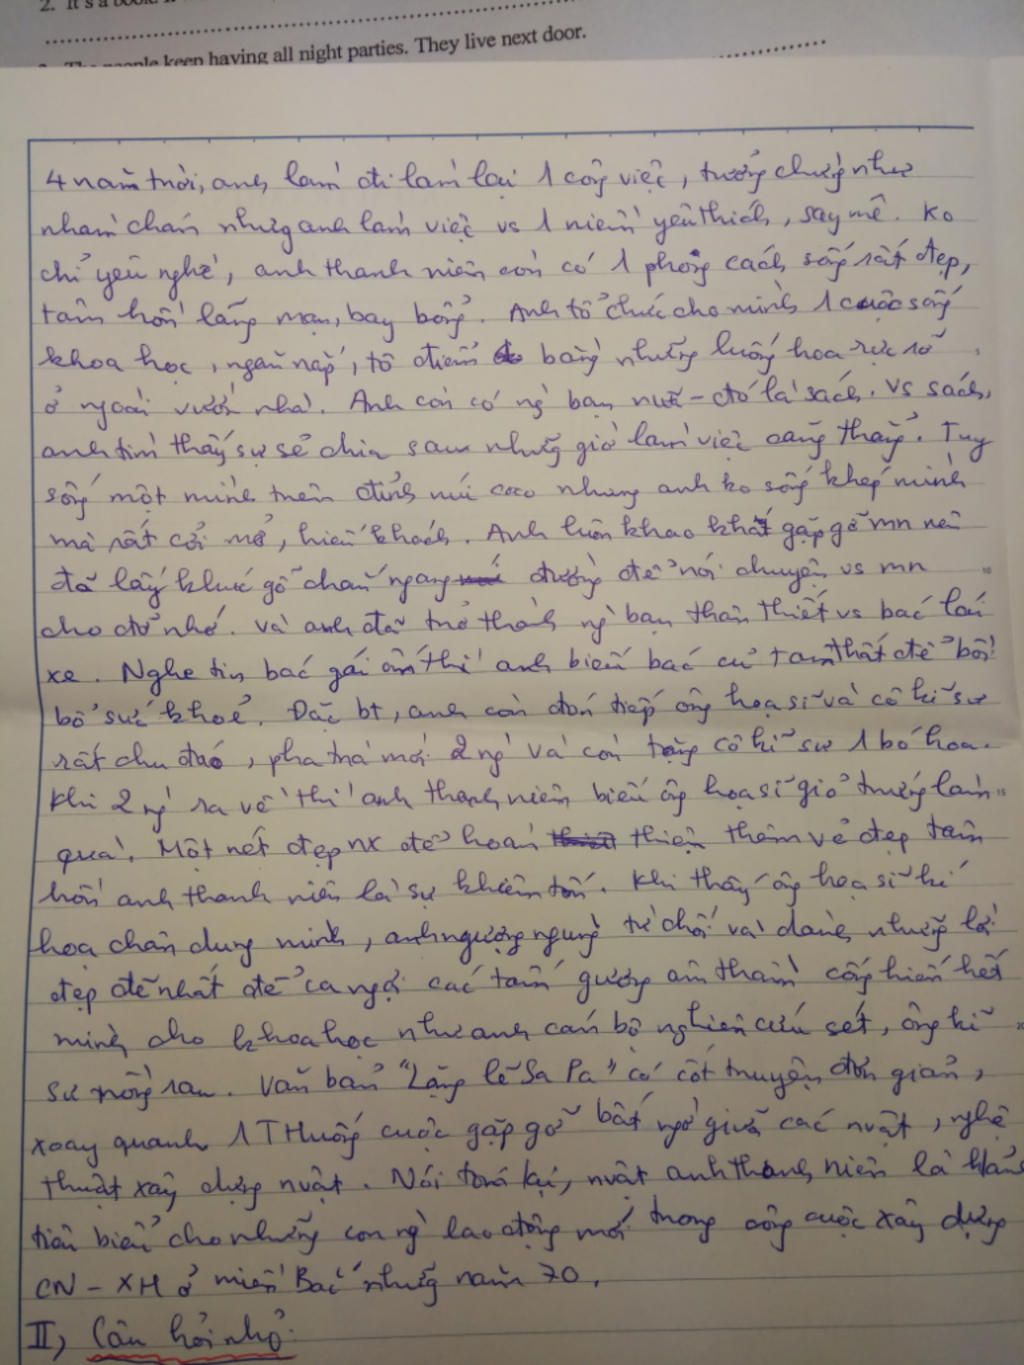 2. It's a book. I
keep having all night parties. They live next door.
4 năm trời, anh làm đi làm lại 1 công việc, tưởng chừng như
nhàm chán nhưng anh làm việc vs 1 niềm yêu thích, say mê. Ko
chỉ yêu nghề, anh thanh niên còn có 1 phong cách sống rất đẹp,
tâm hồn lãng mạn, bay bổng. Anh tổ chức cho mình 1 cuộc sống
khoa học, ngăn nắp, tô điểm bằng những luống hoa rực rỡ
ở ngoài vườn nhà. Anh còn có ng bạn nữa - đó là sách. Vs sách,
anh tìm thấy sự sẻ chia sau những giờ làm việc căng thẳng. Tuy
sống một mình trên đỉnh núi cao nhưng anh ko sống khép mình
mà rất cởi mở, hiếu khách. Anh luôn khao khát gặp gỡ mn nên
đã lấy khúc gỗ chắn ngang đường để nói chuyện vs mn
cho đỡ nhớ. Và anh đã trở thành ng bạn thân thiết vs bác lái
xe. Nghe tin bác gái ốm thì anh biếu bác củ tam thất để bồi
bổ sức khoẻ. Đặc bt, anh còn đón tiếp ông hoạ sĩ và cô kĩ sư
rất chu đáo, pha trà mời 2 ng và còn tặng cô kĩ sư 1 bó hoa.
Khi 2 ng ra về thì anh thanh niên biếu ông hoạ sĩ giỏ trứng làm
quà. Một nét đẹp nx để hoàn thiện thêm vẻ đẹp tâm
hồn anh thanh niên là sự khiêm tốn. Khi thấy ông hoạ sĩ kí
hoạ chân dung mình, anh ngượng ngùng từ chối và dành những lời
đẹp đẽ nhất để ca ngợi các tấm gương âm thầm cống hiến hết
mình cho khoa học như anh cán bộ nghiên cứu sét, ông kĩ
sư vườn rau. Văn bản "Lặng lẽ Sa Pa" có cốt truyện đơn giản,
xoay quanh 1 THuống cuộc gặp gỡ bất ngờ giữa các nvật, nghệ
thuật xây dựng nvật. Nói tóm lại, nvật anh thanh niên là
tiêu biểu cho những con ng lao động mới trong công cuộc xây dựng
CN - XH ở miền Bắc những năm 70.
II, Câu hỏi nhỏ: